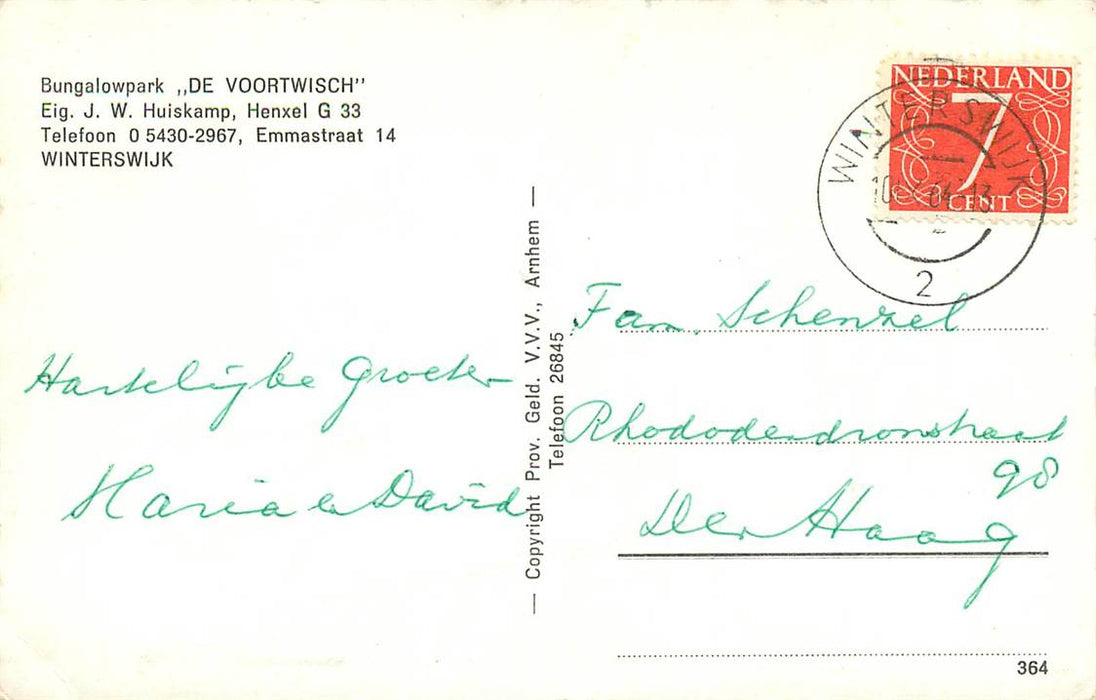 Bungalowpark ,,DE VOORTWISCH''
Eig. J. W. Huiskamp, Henxel G 33
Telefoon 0 5430-2967, Emmastraat 14
WINTERSWIJK
Hartelijke Groeten
Maria en David
— Copyright Prov. Geld. V.V.V., Arnhem —
Telefoon 26845
NEDERLAND
7
CENT
WINTERSWIJK
64-13
2
Fam. Schenzel
Rhododendronstraat
98
Den Haag
364